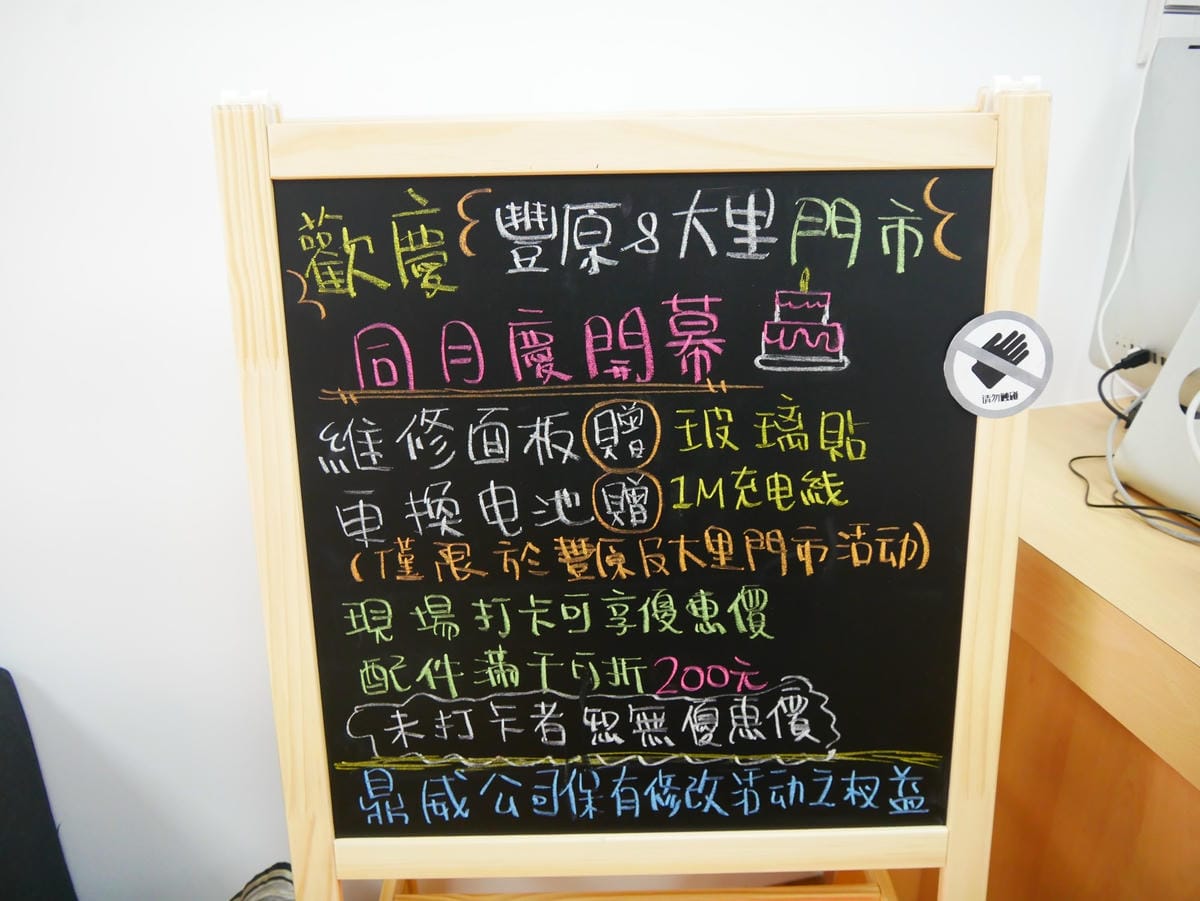 歡慶 豐原&大里門市
同月慶開幕
維修面板贈玻璃貼
更換电池贈1M充电線
(僅限於豐原及大里門市活动)
現場打卡可享優惠價
配件滿千可折200元
未打卡者恕無優惠價
鼎威公司保有修改活动之权益
请勿触碰